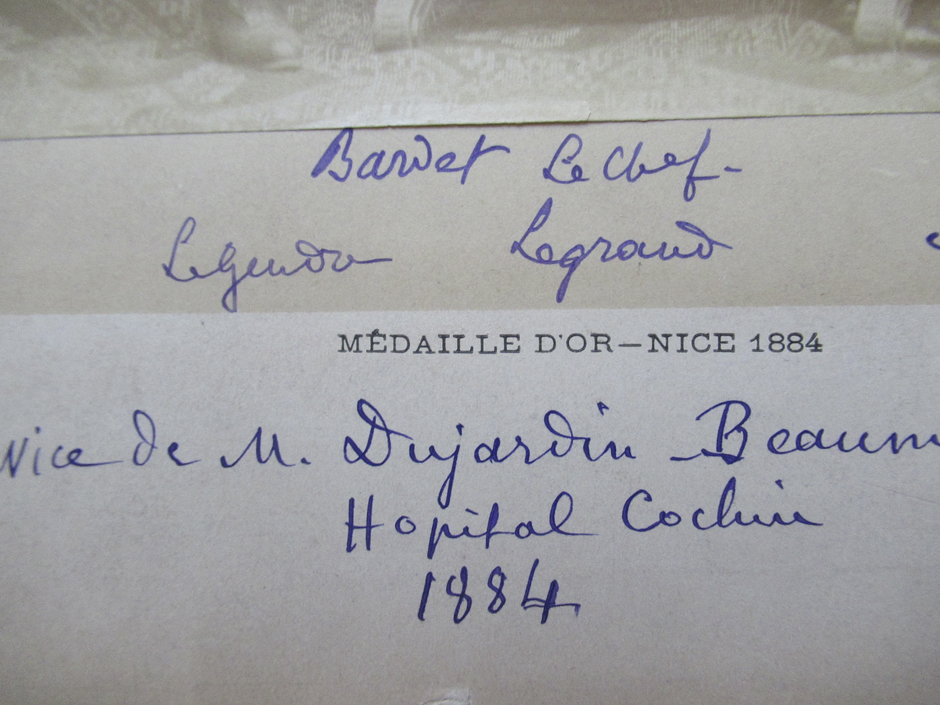 Bardet Le Chef-
Legendre Legrand
MÉDAILLE D'OR—NICE 1884
vice de M. Dujardin Beaum
Hopital Cochin
1884